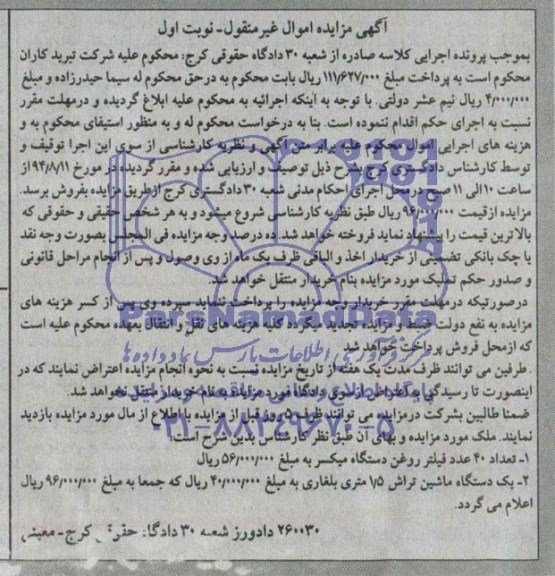 آگهی مزایده اموال غیرمنقول-نوبت اول
بموجب پرونده اجرایی کلاسه صادره از شعبه ۳۰ دادگاه حقوقی کرج: محکوم علیه شرکت تبرید کاران
محکوم است به پرداخت مبلغ ۱۱۱/۶۲۷/۰۰۰ ریال بابت محکوم به درحق محکوم له سیما حیدرزاده و مبلغ
۴/۰۰۰/۰۰۰ ریال نیم عشر دولتی. با توجه به اینکه اجرائیه به محکوم علیه ابلاغ گردیده و درمهلت مقرر
نسبت به اجرای حکم اقدام ننموده است. بنا به درخواست محکوم له و به منظور استیفای محکوم به و
هزینه های اجرایی اموال محکوم علیه برابر متن آگهی و نظریه کارشناسی از سوی این اجرا توقیف و
توسط کارشناس دادگستری کرج بشرح ذیل توصیف و ارزیابی شده و مقرر گردیده در مورخ ۹۴/۸/۱۱ از
ساعت ۱۰ الی ۱۱ صبح درمحل اجرای احکام مدنی شعبه ۳۰ دادگستری کرج ازطریق مزایده بفروش برسد.
مزایده ازقیمت ۹۶/۰۰۰/۰۰۰ ریال طبق نظریه کارشناسی شروع میشود و به هر شخص حقیقی و حقوقی که
بالاترین قیمت را پیشنهاد نماید فروخته خواهد شد. ده درصد وجه مزایده فی المجلس بصورت وجه نقد
یا چک بانکی تضمینی از خریدار اخذ و الباقی ظرف یک ماه از وی وصول و پس از انجام مراحل قانونی
و صدور حکم تملیک مورد مزایده بنام خریدار منتقل خواهد شد.
درصورتیکه درمهلت مقرر خریدار وجه مزایده را پرداخت ننماید سپرده وی پس از کسر هزینه های
مزایده به نفع دولت ضبط و مزایده تجدید میگردد کلیه هزینه های نقل و انتقال بعهده محکوم علیه است
که ازمحل فروش پرداخت خواهد شد
ParsNamadData
مرکز فرآوری اطلاعات پارس نماد داده ها
. طرفین می توانند ظرف مدت یک هفته از تاریخ مزایده نسبت به نحوه انجام مزایده اعتراض نمایند که در
اینصورت تا رسیدگی به اعتراض از سوی دادگاه مورد مزایده بنام خریدار منتقل نخواهد شد.
ضمنا طالبین بشرکت درمزایده می توانند ظرف ۵ روز قبل از مزایده با اطلاع از مال مورد مزایده بازدید
نمایند. ملک مورد مزایده و بهای آن طبق نظر کارشناس بدین شرح است:
۰۲۱-۸۸۳۴۹۶۷۰-۵
۱- تعداد ۴۰ عدد فیلتر روغن دستگاه میکسر به مبلغ ۵۶/۰۰۰/۰۰۰ ریال
۲- یک دستگاه ماشین تراش ۱/۵ متری بلغاری به مبلغ ۴۰/۰۰۰/۰۰۰ ریال که جمعا به مبلغ ۹۶/۰۰۰/۰۰۰ ریال
اعلام می گردد.
۲۶۰۰۳۰ دادورز شعبه ۳۰ دادگاه حقوقی کرج-معینی